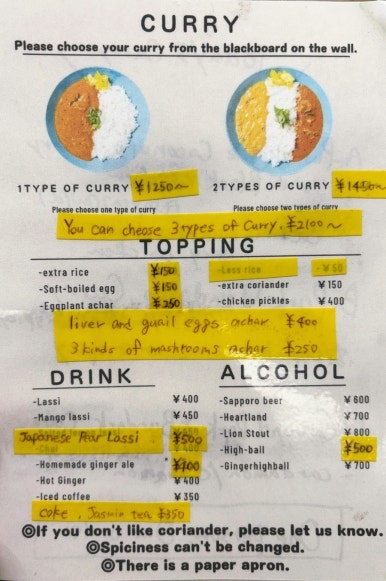 CURRY
Please choose your curry from the blackboard on the wall.
1TYPE OF CURRY ¥1250~
2TYPES OF CURRY ¥1450~
Please choose one type of curry
Please choose two types of curry
You can choose 3types of Curry. ¥2100~
TOPPING
-extra rice ¥150
-Soft-boiled egg ¥150
-Eggplant achar ¥250
-Less rice -¥50
-extra coriander ¥150
-chicken pickles ¥400
liver and quail eggs achar ¥400
3 kinds of mashrooms achar ¥250
DRINK
-Lassi ¥400
-Mango lassi ¥450
Japanese Pear Lassi ¥500
-Homemade ginger ale ¥700
-Hot Ginger ¥400
-Iced coffee ¥350
coke, Jasmin tea ¥350
ALCOHOL
-Sapporo beer ¥600
-Heartland ¥700
-Lion Stout ¥800
-High-ball ¥500
-Gingerhighball ¥700
◎If you don't like coriander, please let us know.
◎Spiciness can't be changed.
◎There is a paper apron.